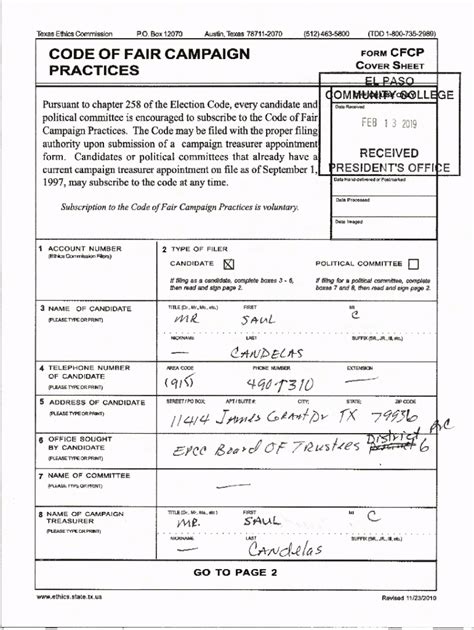 Texas Ethics Commission P.O. Box 12070 Austin, Texas 78711-2070 (512) 463-5800 (TDD 1-800-735-2989)
CODE OF FAIR CAMPAIGN PRACTICES
FORM CFCP
COVER SHEET
EL PASO
COMMUNITY COLLEGE
Date Received
FEB 13 2019
RECEIVED
PRESIDENT'S OFFICE
Date Hand-delivered or Postmarked
Date Processed
Date Imaged
Pursuant to chapter 258 of the Election Code, every candidate and
political committee is encouraged to subscribe to the Code of Fair
Campaign Practices. The Code may be filed with the proper filing
authority upon submission of a campaign treasurer appointment
form. Candidates or political committees that already have a
current campaign treasurer appointment on file as of September 1,
1997, may subscribe to the code at any time.
Subscription to the Code of Fair Campaign Practices is voluntary.
1 ACCOUNT NUMBER
(Ethics Commission Filers)
2 TYPE OF FILER
CANDIDATE ☒ POLITICAL COMMITTEE ☐
If filing as a candidate, complete boxes 3 - 6,
then read and sign page 2.
If filing for a political committee, complete
boxes 7 and 8, then read and sign page 2.
3 NAME OF CANDIDATE
(PLEASE TYPE OR PRINT)
TITLE (Dr., Mr., Ms., etc.) FIRST MI
MR SAUL C
NICKNAME LAST SUFFIX (SR., JR., III, etc.)
CANDELAS
4 TELEPHONE NUMBER
OF CANDIDATE
(PLEASE TYPE OR PRINT)
AREA CODE PHONE NUMBER EXTENSION
(915) 490-1310
5 ADDRESS OF CANDIDATE
(PLEASE TYPE OR PRINT)
STREET / PO BOX; APT / SUITE #; CITY; STATE; ZIP CODE
11414 James Grant Dr TX 79936
6 OFFICE SOUGHT
BY CANDIDATE
(PLEASE TYPE OR PRINT)
EPCC Board OF Trustees District 6
7 NAME OF COMMITTEE
(PLEASE TYPE OR PRINT)
8 NAME OF CAMPAIGN
TREASURER
(PLEASE TYPE OR PRINT)
TITLE (Dr., Mr., Ms., etc.) FIRST MI
MR. SAUL C
NICKNAME LAST SUFFIX (SR., JR., III, etc.)
Candelas
GO TO PAGE 2
www.ethics.state.tx.us Revised 11/23/2010